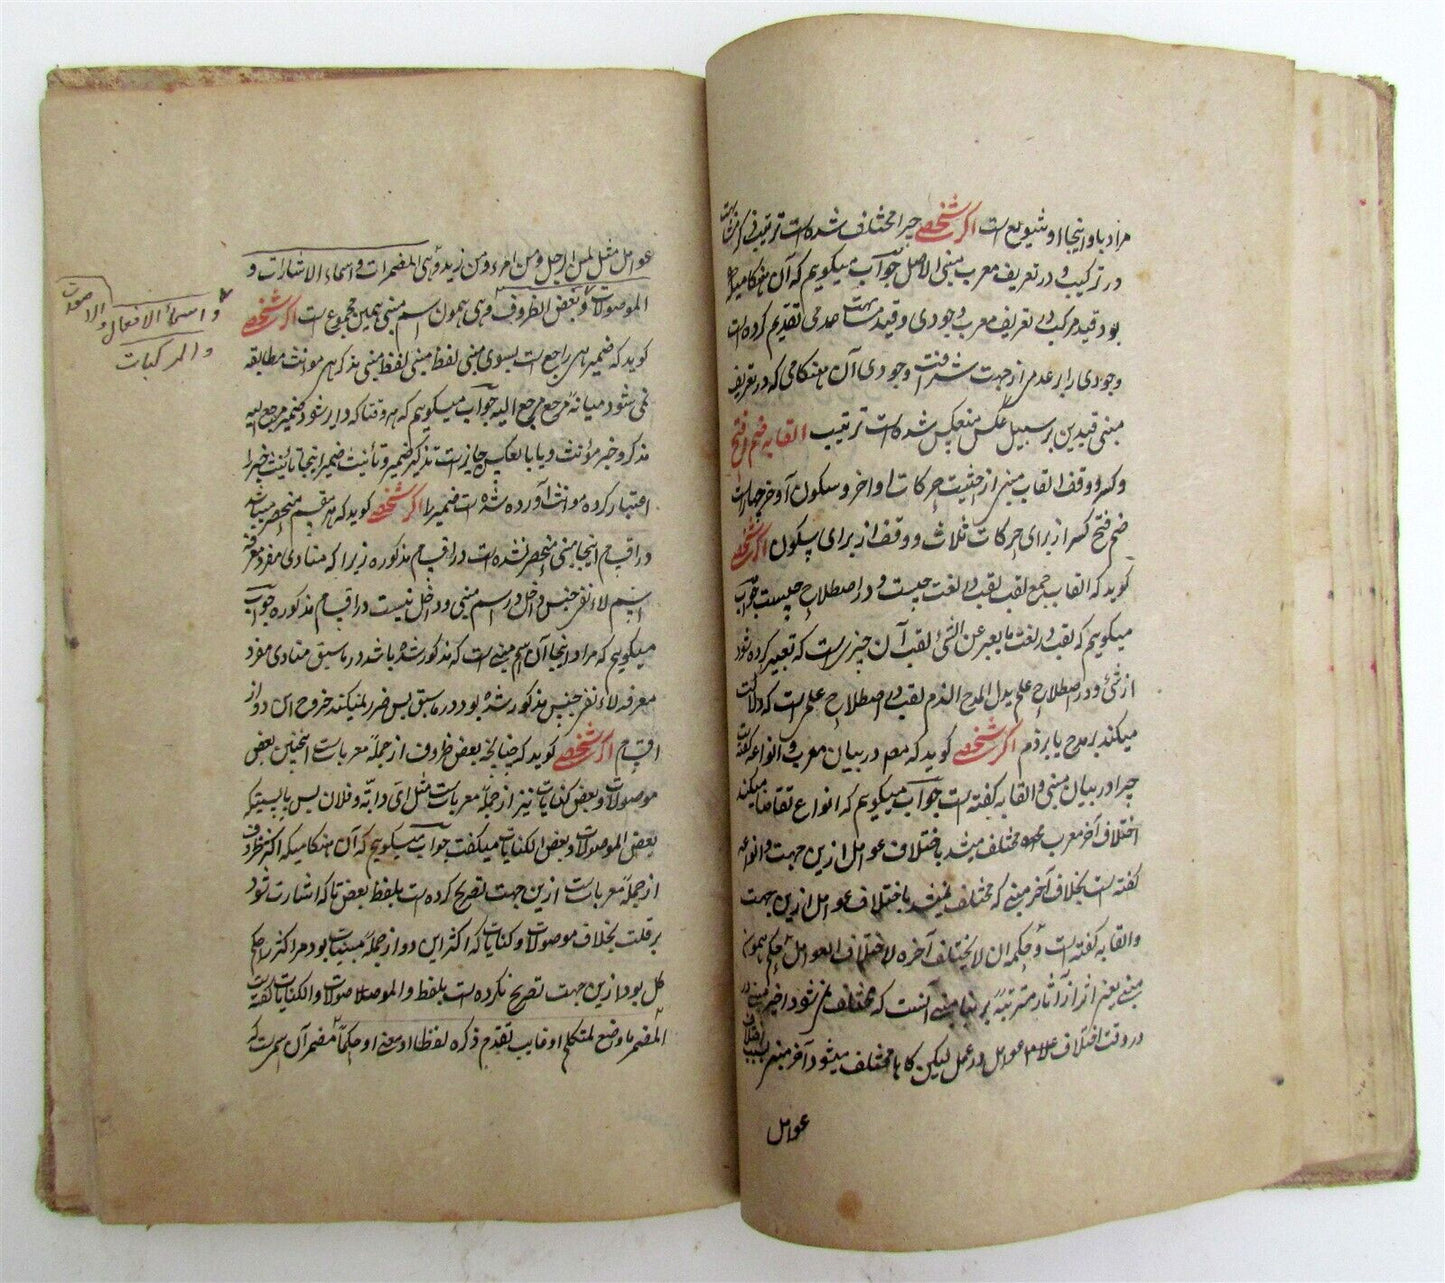 مراد باو اینجا او شیوع است اکر شخصی چرا مختلف شده است ترتیب
در ترکیب و در تعریف معرب مبنی الاصل جواب میکویم که آن هنکامیکه
بود قید مرکب در تعریف معرب وجودی و قید مشابهت عدمی تقدیم کرده است
وجودی را بر عدمی از جهت شرافت وجودی آن هنکامی که در تعریف
مبنی قیدین بر سبیل عکس منعکس شده است ترتیب القابه ضم و فتح
و کسر و وقف القاب مبنی از حیثیت حرکات اواخر و سکون آو خر چهار است
ضم فتح کسر از برای حرکات ثلاث و وقف از برای سکون اکر شخصی
کوید که القاب جمع لقب لقب در لغت چیست و در اصطلاح چیست جواب
میکویم که لقب در لغت ما یعبر عن الشئ لقب آن چیزیست که تعبیر کرده شود
از شئ و در اصطلاح علم یدل المدح الذم لقب در اصطلاح علم است که دلالت
میکند بر مدح یا بر ذم اکر شخصی کوید که مصر در بیان معرب و انواعه کفته
چرا در بیان مبنی و القابه کفته است جواب میکویم که انواع تقاضا میکند
اختلاف آخر معرب مختلف میشد باختلاف عوامل ازین جهت و انواعه
کفته است بخلاف آخر مبنی که مختلف نمیشد باختلاف عوامل ازین جهت
و القابه کفته است و حکمه ان لا یختلف آخره لاختلاف العوامل حکم همون
مبنی یعنی اثر از آثار مترتبه بر بنا مبنی آنست که مختلف نمی شود اخر مبنی
در وقت اختلاف عوامل در عمل لیکن کاها مختلف میشود آخر مبنی بسبب اختلاف
عوامل
عوامل مثل لمن الرجل و من امرء و من زید و هی المضمرات و اسماء الاشارات و
الموصولات و بعض الظروف و هی همون اسم مبنی همین مجموع است اکر شخصی
کوید که ضمیر هی راجع است بسوی مبنی لفظ مبنی لفظ مبنی مذکر هی مونث مطابقه
نمی شود میانه مرجع مرجع الیه جواب میکویم که هر وقتا که دایر شود ضمیر مرجع الیه
مذکر و خبر مؤنث و یا بالعکس جایز است تذکیر ضمیر و تأنیث ضمیر اینجا تانیث خبر را
اعتبار کرده مونث آورده شده است ضمیر را اکر شخصی کوید که هر مقسم منحصر میباشد
در اقسام اینجا مبنی منحصر نشده است در اقسام مذکوره زیرا که منادی مفرد معرفه
اسم لاء نفی جنس داخل در اسم مبنی و داخل نیست در اقسام مذکوره جواب
میکویم که مراد اینجا آن اسم مبنی است که مذکور نشده باشد در ما سبق منادی مفرد
معرفه لاء نفی جنس مذکور شده بود در ما سبق پس ضرر نمیکند خروج این دو از
اقسام اکر شخصی کوید که چنانچه بعض ظروف از جمله معربات است همچنین بعض
موصولات و بعض کنایات نیز از جمله معربات است مثل ای دابّة و فلان پس بایستیکه
بعض الموصولات و بعض الکنایات میکفت جواب میکویم که آن هنکامیکه اکثر ظروف
از جمله معربات است ازین جهت تصریح کرده است بلفظ بعض تا که اشارت شود
بر قلت بخلاف موصولات و کنایات که اکثر این دو از جمله مبنیات بود مر اکثر را حکم
کل بود ازین جهت تصریح نکرده است بلفظ و الموصولات و الکنایات کفته
المضمر ما وضع لمتکلم او غایب تقدم ذکره لفظا او معنی او حکما مضمر آن اسم است که
و اسماء الافعال و الاصوات
و المرکبات